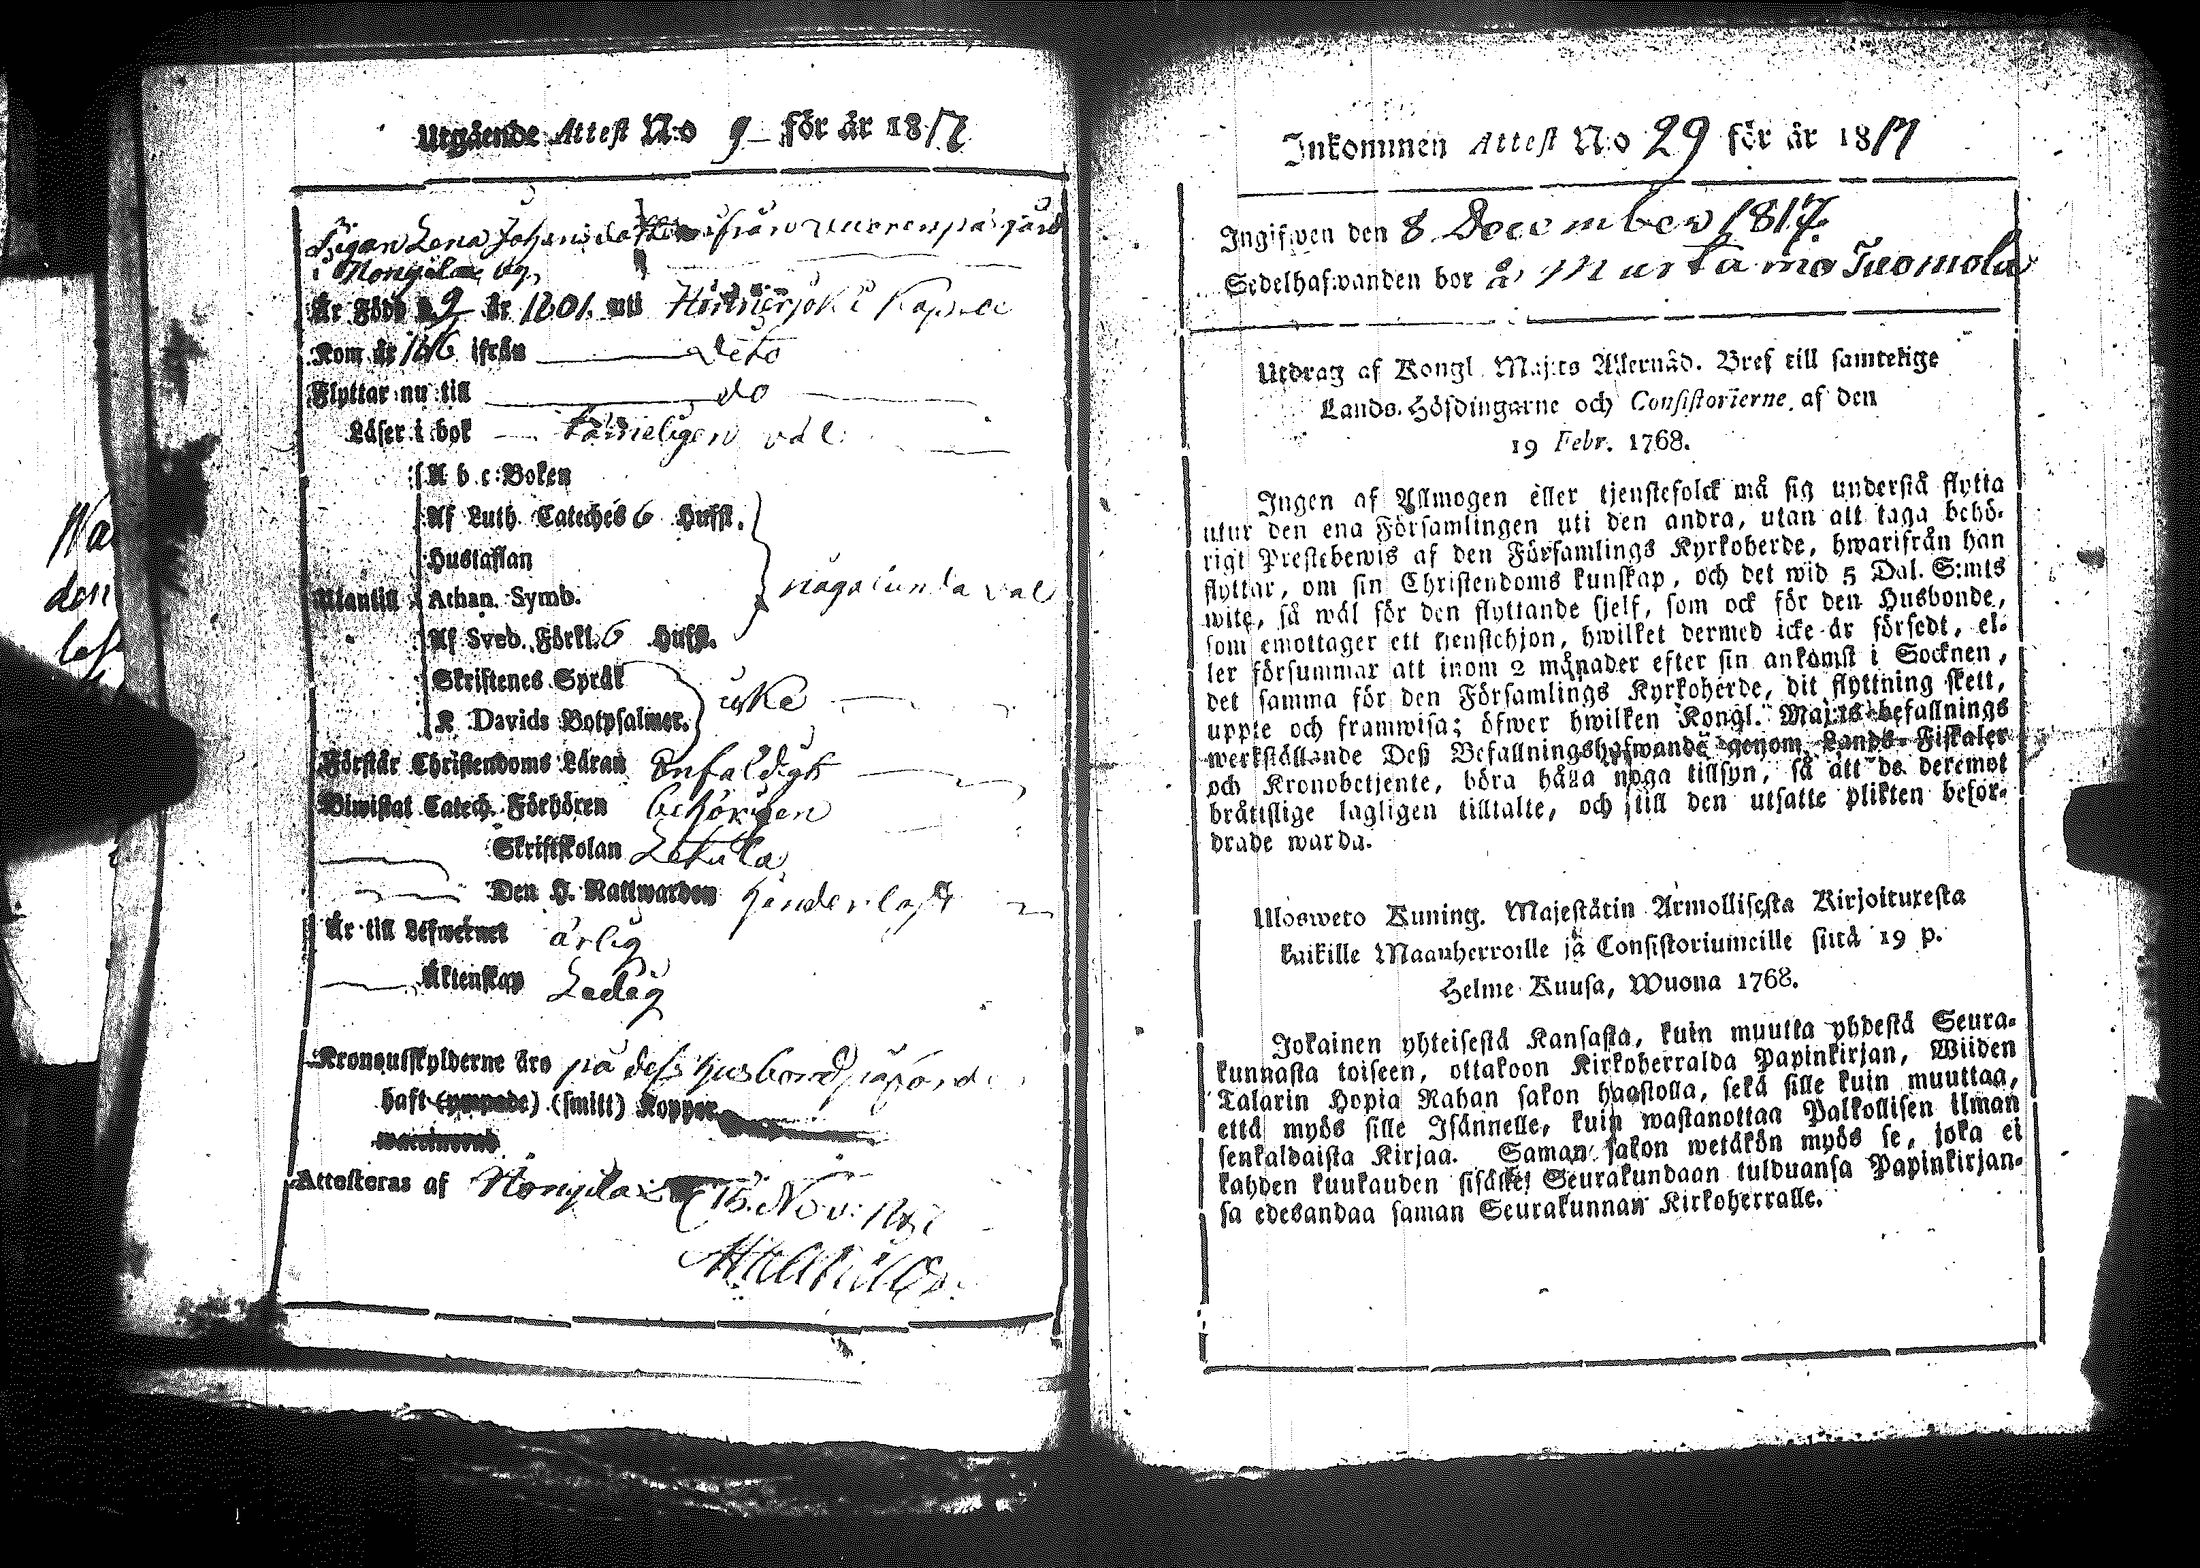 Utgående Attest N:o 9 för år 1817
Pigan Lena Johansdotter ifrån Vuorenpä gård
i Nongila by,
Är Född d. 9 År 1801. uti Hörtnerjoki Kapell
Kom år 1816 ifrån dito
Flyttar nu till do
Läser i bok tämeligen väl
A b c:Boken
Af Luth. Cateches 6 Hufst.
Hustaflan
någorlunda väl
Utantill Athan. Symb.
Af Sveb. Förkl. 6 Hufst.
Skriftenes Språk
icke
K Davids Botpsalmer.
Förstår Christendoms Läran Enfaldigt
Biwistat Catech. Förhören behörigen
Skriftskolan
Den H. Nattwarden
Är till Lefwernet ärlig
Äktenskap Ledig
Kronoutskylderne äro på dess husbonds
haft (ympade) (smitt) Koppor
Attesteras af Nongila 15. Nov: 1817
Inkommen Attest N:o 29 för år 1817
Ingifwen den 8 December 1817.
Sedelhafwanden bor å Murtamo Tuomola
Utdrag af Kongl. Maj:ts Allernåd. Bref till samtelige
Lands-Höfdingarne och Consistorierne af den
19 Febr. 1768.
Ingen af Allmogen eller tjenstefolck må sig understå flytta
utur den ena Församlingen uti den andra, utan att taga behö-
rigt Prestebewis af den Församlings Kyrkoherde, hwarifrån han
flyttar, om sin Christendoms kunskap, och det wid 5 Dal. S:mts
wite, så wäl för den flyttande sjelf, som ock för den Husbonde,
som emottager ett tjenstehjon, hwilket dermed icke är försedt, el-
ler försummar att inom 2 månader efter sin ankomst i Socknen,
det samma för den Församlings Kyrkoherde, dit flyttning skett,
uppte och framwisa; öfwer hwilken Kongl. Maj:ts befallnings
werkställande Deß Befallningshafwande genom Lands-Fiskaler
och Kronobetjente, böra hålla noga tillsyn, så att de deremot
bråttslige lagligen tilltalte, och till den utsatte plikten befor-
drade warda.
Ulosweto Kuning. Majestätin Armollisesta Kirjoituxesta
kaikille Maanherroille ja Consistoriumeille siitä 19 p.
Helme Kuusa, Wuona 1768.
Jokainen yhteisestä Kansasta, kuin muutta yhdestä Seura-
kunnasta toiseen, ottakoon Kirkoherralda Papinkirjan, Wiiden
Talarin Hopia Rahan sakon haastolla, sekä sille kuin muuttaa,
että myös sille Isännelle, kuin wastanottaa Palkollisen ilman
senkaldaista Kirjaa. Saman sakon wetäkön myös se, joka ei
kahden kuukauden sisälle Seurakundaan tulduansa Papinkirjan-
sa edesandaa saman Seurakunnan Kirkoherralle.